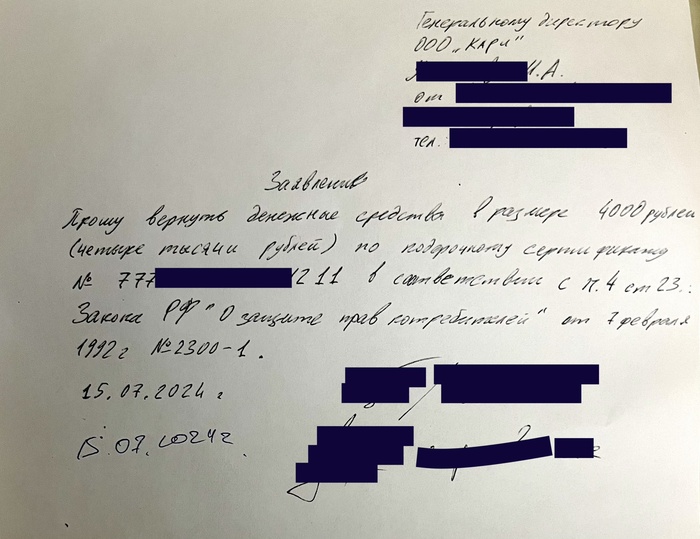 Генеральному директору
ООО „Кари"
И.А.
от
тел.
Заявление
Прошу вернуть денежные средства в размере 4000 рублей
(четыре тысячи рублей) по подарочному сертификату
№ 777 12 11 в соответствии с п.4 ст 23.
Закона РФ "О защите прав потребителей" от 7 февраля
1992 г №2300-1.
15.07.2024 г
15.07.2024г.